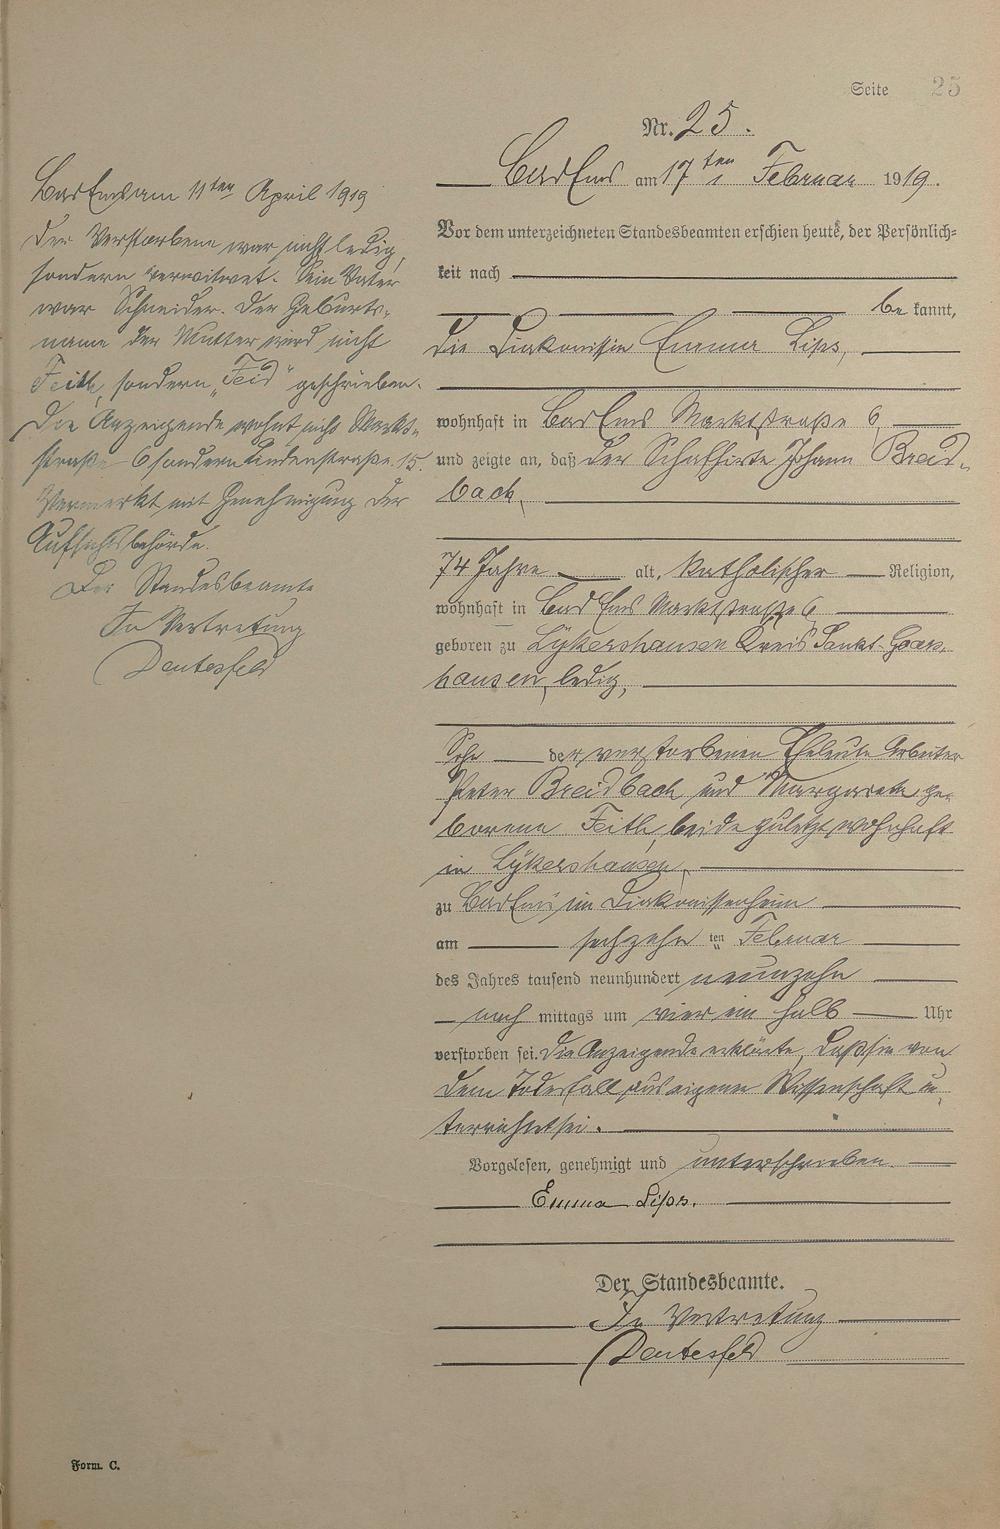 Seite 25
Nr. 25.
Bad Ems am 17ten Februar 1919.
Vor dem unterzeichneten Standesbeamten erschien heute, der Persönlich=
keit nach
be kannt,
die Diakonissin Emma Lips,
wohnhaft in Bad Ems Marktstraße 6,
und zeigte an, daß der Schafhirte Johann Breid-
bach,
74 Jahre alt, katholischer Religion,
wohnhaft in Bad Ems Marktstraße 6
geboren zu Lykershausen Kreis Sankt Goars-
hausen, ledig,
Sohn der verstorbenen Eheleute Arbeiter
Peter Breidbach und Margareta ge-
borene Feith, beide zuletzt wohnhaft
in Lykershausen,
zu Bad Ems im Diakonissenheim
am sechzehn ten Februar
des Jahres tausend neunhundert neunzehn
nach mittags um vier ein halb Uhr
verstorben sei. Die Anzeigende erklärte, daß sie von
dem Todesfall aus eigener Wissenschaft un-
terrichtet sei.
Vorgelesen, genehmigt und unterschrieben.
Emma Lips.
Der Standesbeamte.
In Vertretung
Bad Ems am 11ten April 1919
Der Verstorbene war nicht ledig,
sondern verwitwet. Sein Vater
war Schneider. Der Geburts-
name der Mutter wird nicht
Feith, sondern „Feid" geschrieben.
Die Anzeigende wohnt nicht Markt-
straße 6 sondern Lindenstraße 15.
Vermerkt mit Genehmigung der
Aufsichtsbehörde.
Der Standesbeamte
In Vertretung
Form. C.